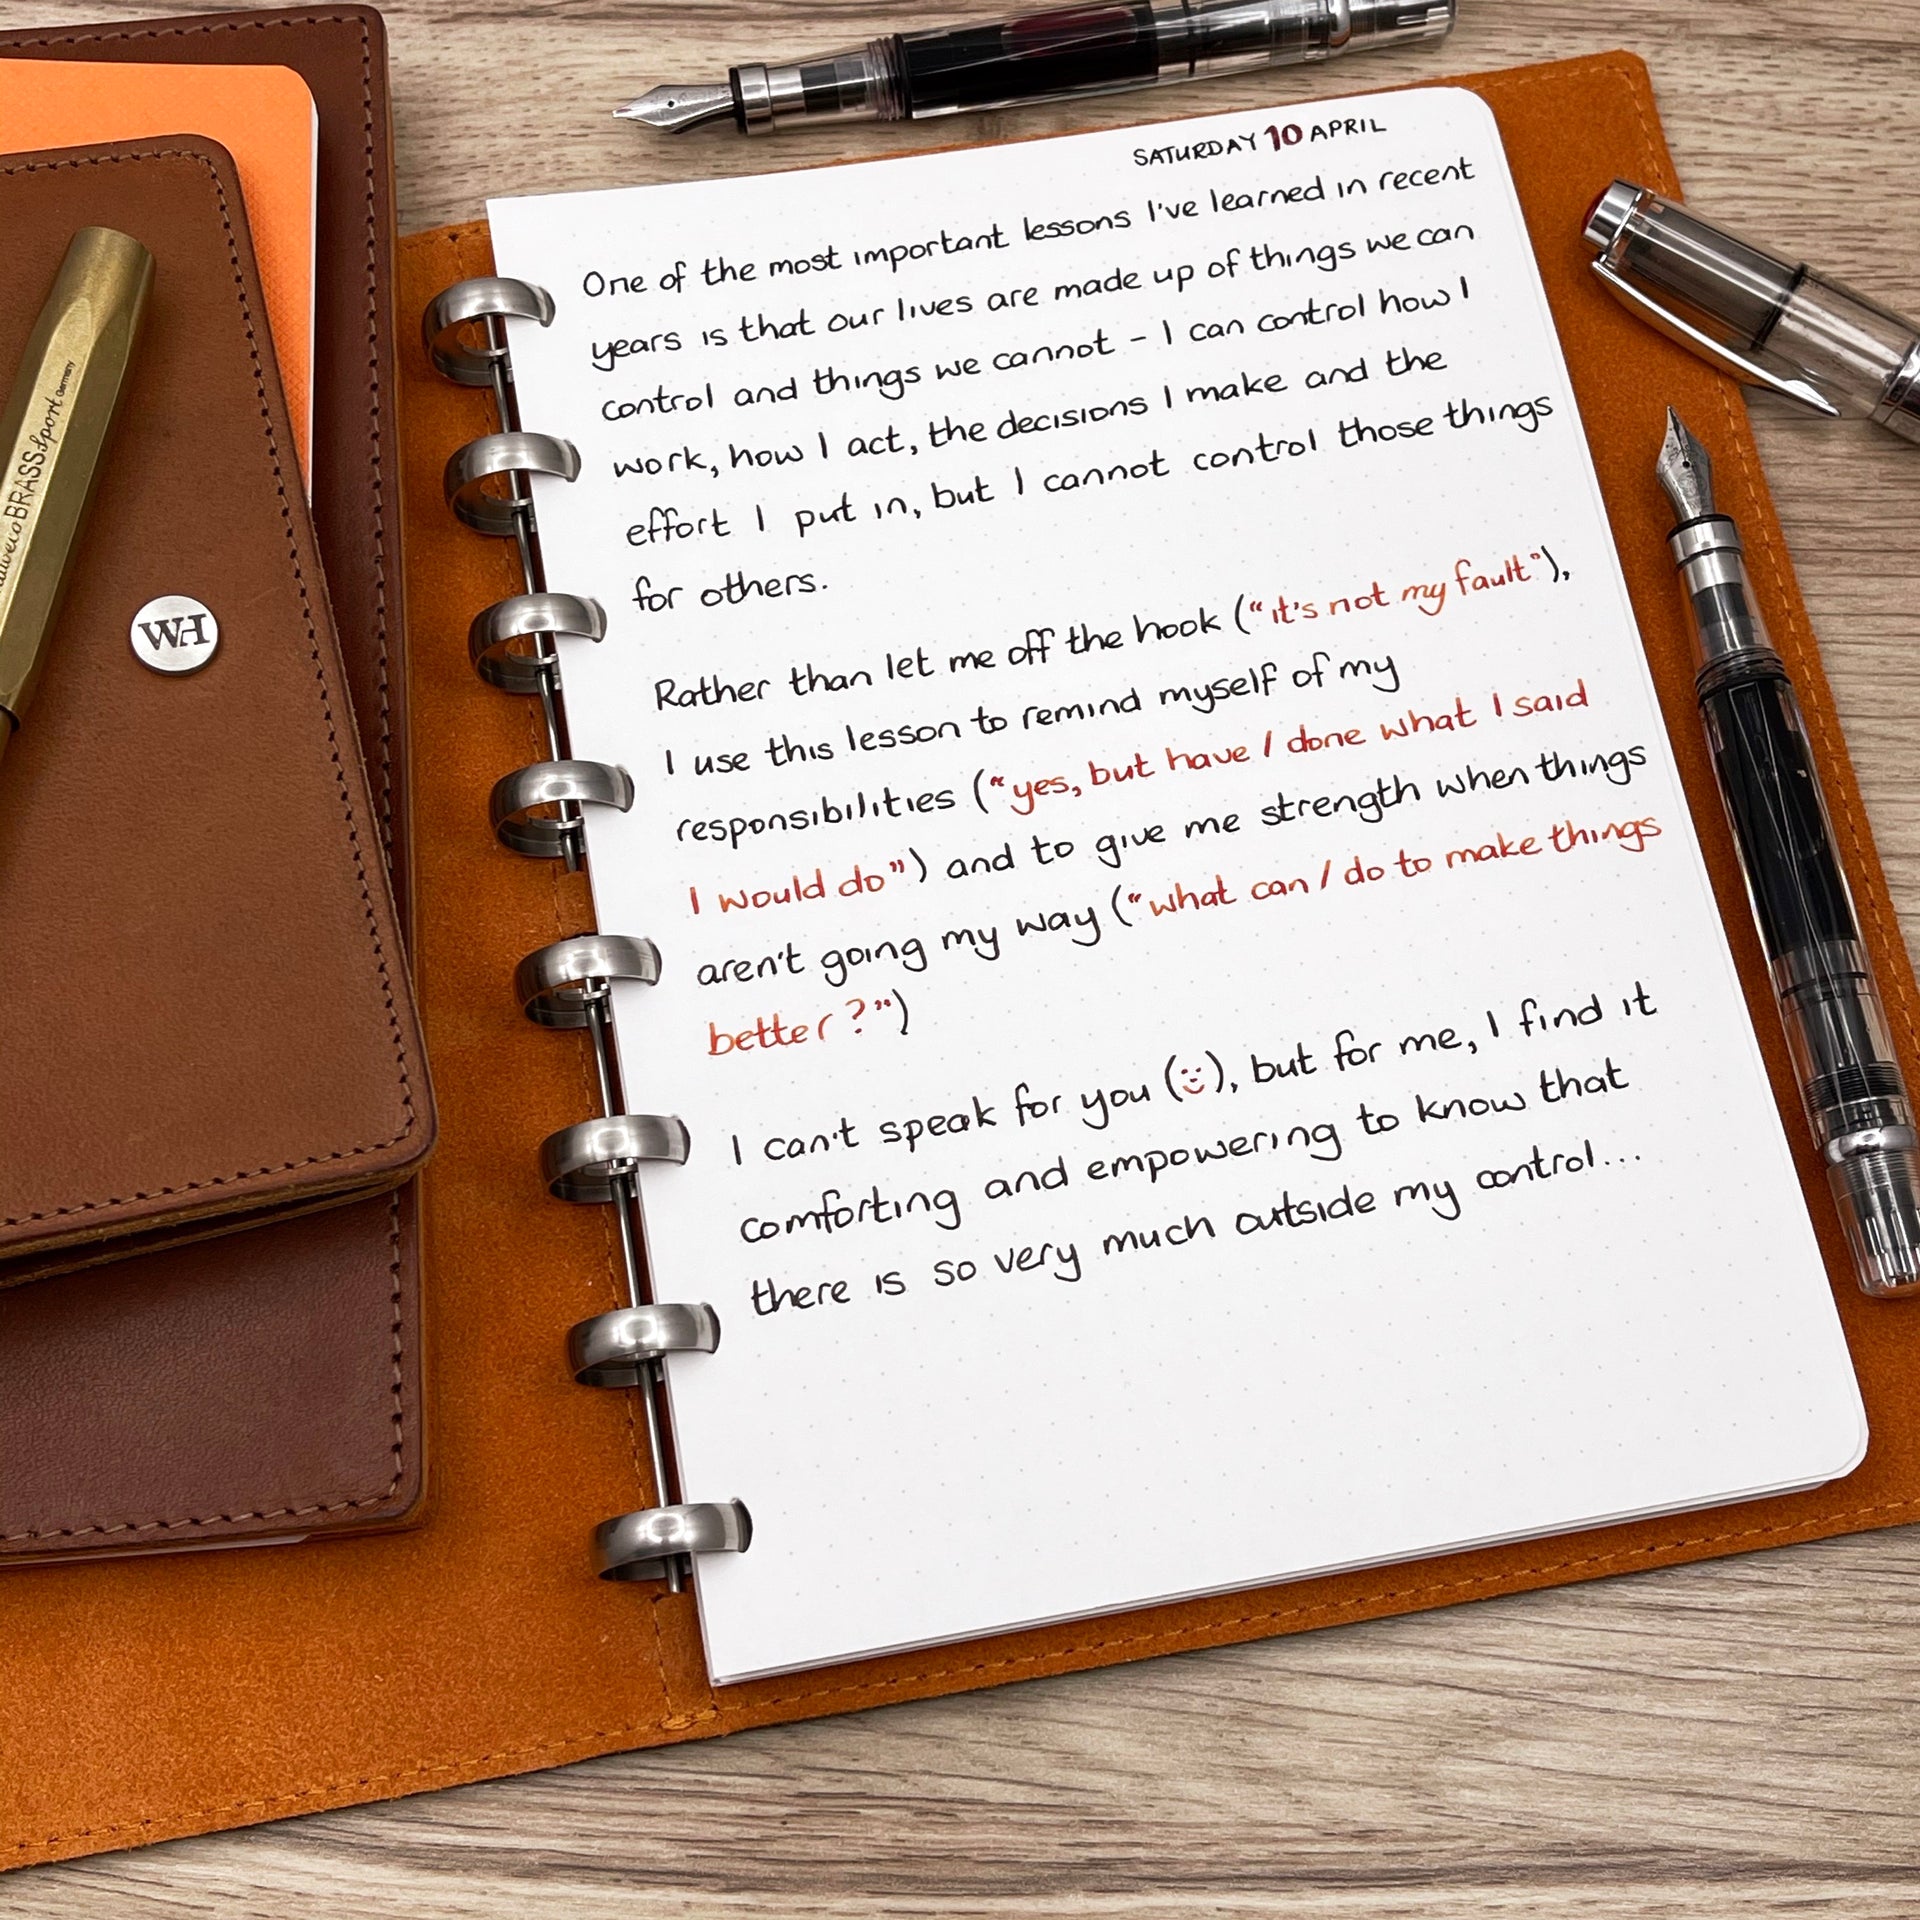 SATURDAY 10 APRIL
One of the most important lessons I've learned in recent
years is that our lives are made up of things we can
control and things we cannot - I can control how I
work, how I act, the decisions I make and the
effort I put in, but I cannot control those things
for others.
Rather than let me off the hook ("it's not my fault"),
I use this lesson to remind myself of my
responsibilities ("yes, but have I done what I said
I would do") and to give me strength when things
aren't going my way ("what can I do to make things
better?")
I can't speak for you (:), but for me, I find it
comforting and empowering to know that
there is so very much outside my control...
BRASS Sport Germany
WH